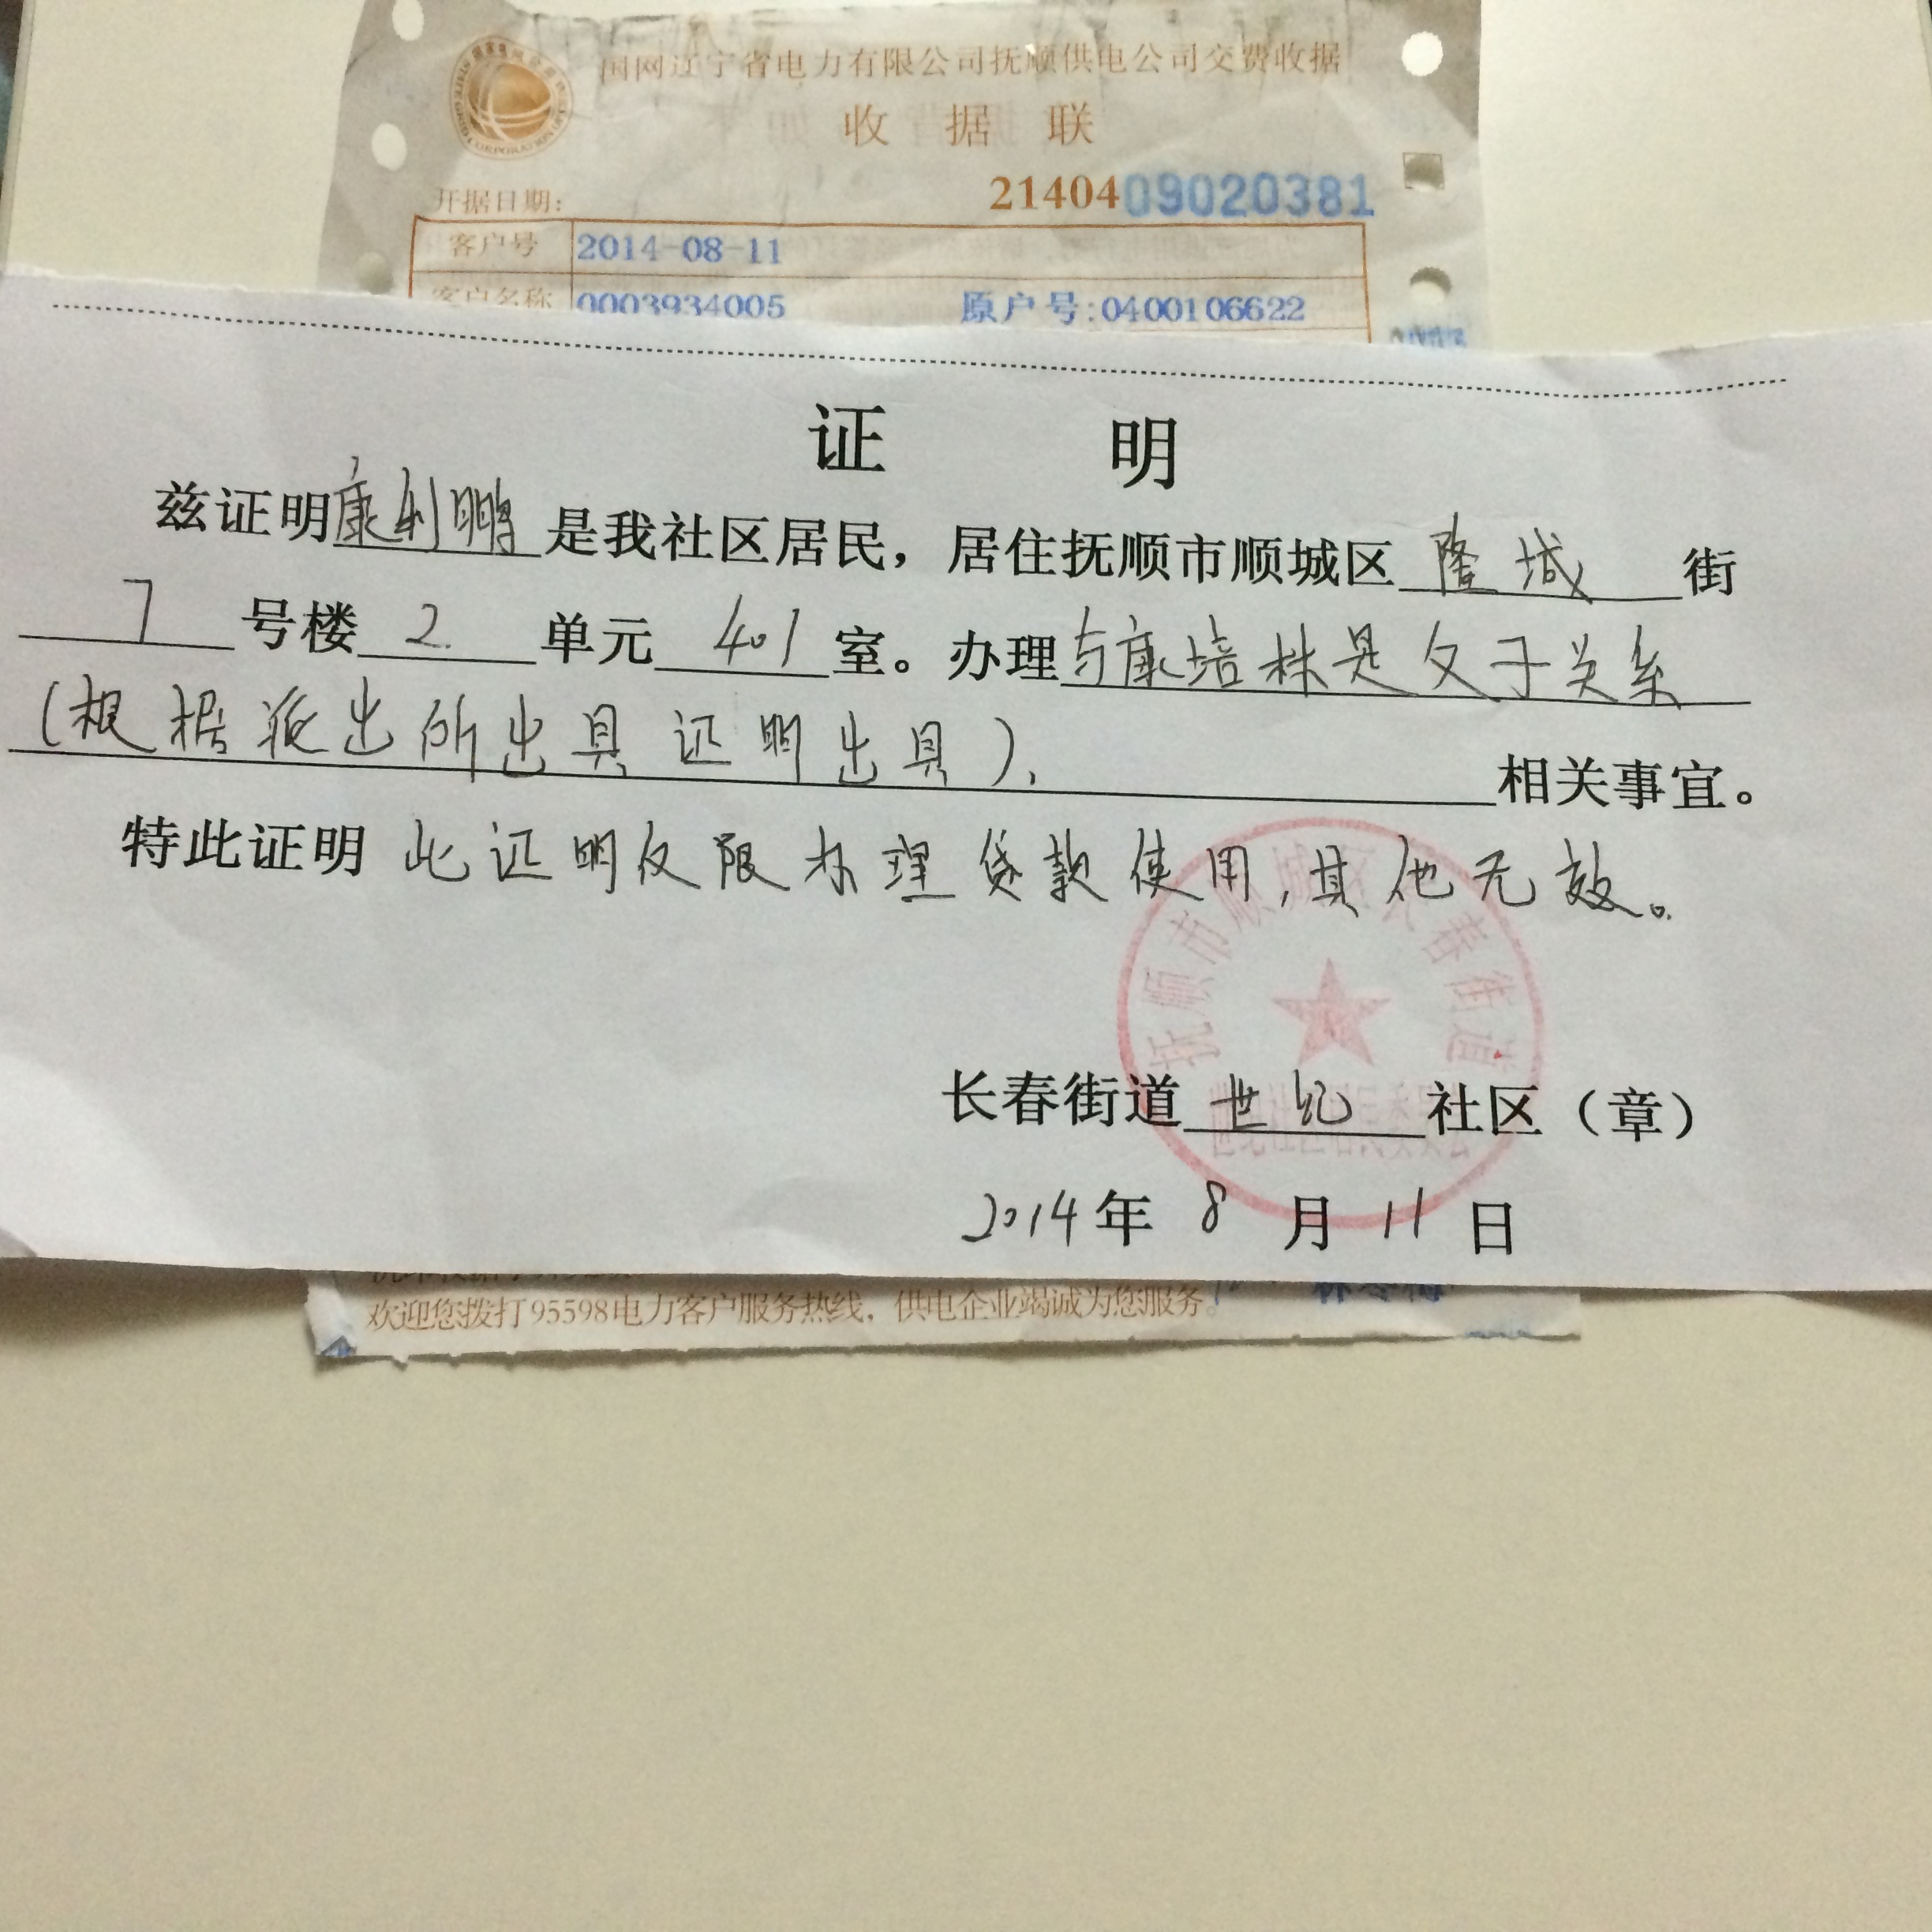 国网辽宁省电力有限公司抚顺供电公司交费收据
收据联
2140409020381
开据日期:
客户号 2014-08-11
客户名称 0003934005 原户号:0400106622
证 明
兹证明康利鹏是我社区居民，居住抚顺市顺城区隆城街
7号楼2单元401室。办理与康培林是父子关系
(根据派出所出具证明出具)，相关事宜。
特此证明 此证明仅限办理贷款使用，其他无效。
抚顺市顺城区长春街道
长春街道世纪社区（章）
2014年8月11日
欢迎您拨打95598电力客户服务热线，供电企业竭诚为您服务。